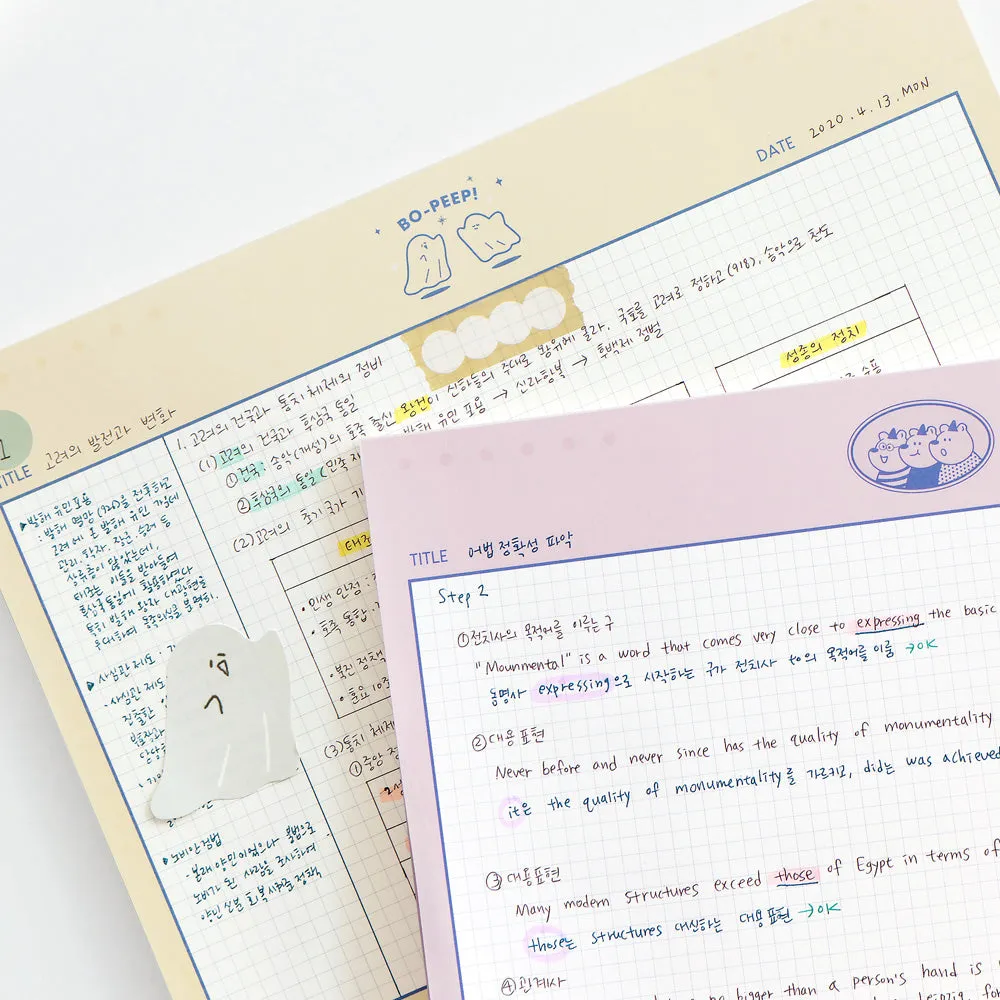 BO-PEEP!
DATE 2020.4.13.MON
1
TITLE 고려의 발전과 변화
1. 고려의 건국과 통치 체제의 정비
(1) 고려의 건국과 후삼국 통일
① 건국: 송악(개성)의 호족 출신 왕건이 신하들의 추대로 왕위에 올라. 국호를 고려로 정하고(918), 송악으로 천도
② 후삼국의 통일(민족 재 발해 유민 포용 → 신라항복 → 후백제 정벌
(2) 고려의 초기 국가 기
성종의 정치
수용
태조
• 민생 안정 :
• 호족 통합 :
• 북진 정책
• 훈요 10조
(3) 통치 체제
① 중앙 정
2성
▶발해 유민포용
: 발해 멸망(926)을 전후하고
고려에 온 발해 유민 가운데
관리, 학자, 장군, 승려 등
상류층이 많았는데,
태조는 이들을 받아들여
후삼국 통일에 활용하였다
특히 발해 왕자 대광현을
우대하여 동족의식을 분명히.
▶사심관 제도 :
사심관 제도
진출한
▶노비안검법
: 본래 양민이었으나 불법으로
노비가 된 사람을 조사하여
양인 신분 회복시켜준 정책
TITLE 어법 정확성 파악
Step 2
①전치사의 목적어를 이루는 구
"Mounmental" is a word that comes very close to expressing the basic
동명사 expressing으로 시작하는 구가 전치사 to의 목적어를 이룸 →OK
②대용표현
Never before and never since has the quality of monumentality
it은 the quality of monumentality를 가르키고, did는 was achieved
③대용표현
Many modern structures exceed those of Egypt in terms of
those는 structures 대신하는 대용표현 →OK
④관계사
no bigger than a person's hand is